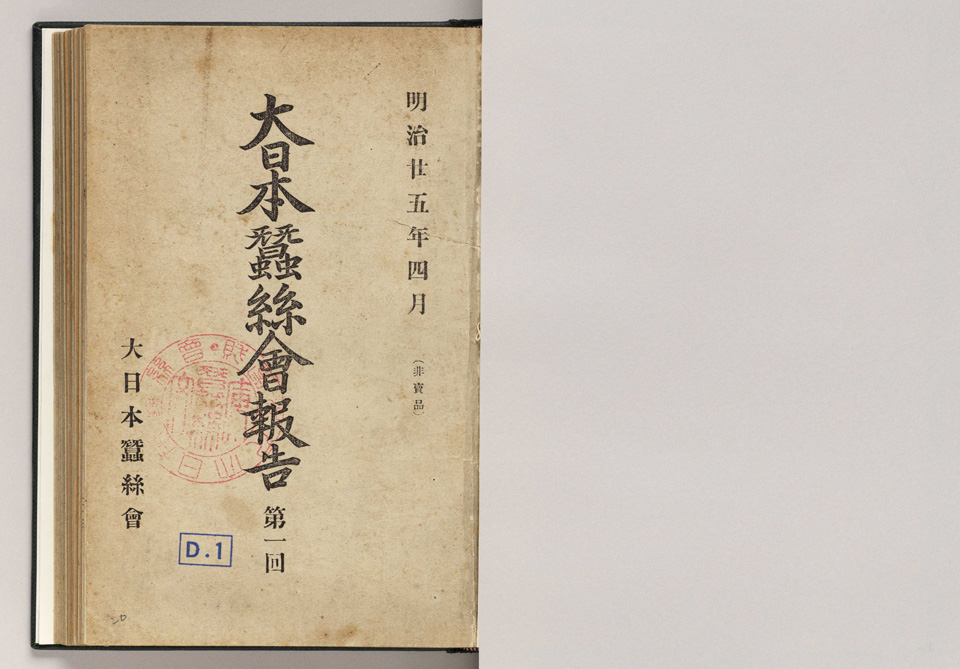 明治廿五年四月
（非賣品）
大日本蠶絲會報告
第一回
大日本蠶絲會
D.1